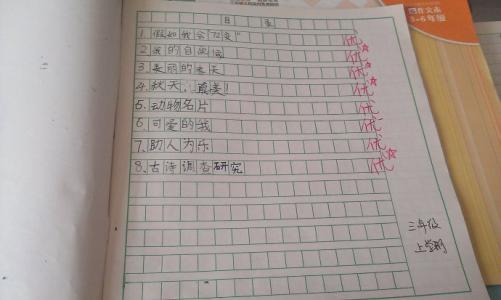 目录
1.假如我会"72变" 优☆
2.我的自画像 优☆
3.美丽的冬天 优☆
4.秋天,最美! 优☆
5.动物名片 优
6.可爱的我 优
7.助人为乐 优☆
8.古诗调查研究 优
三年级
上学期
作文本
3-6年级